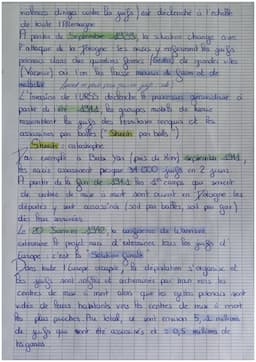 violences dirigées contre les juifs) est déclenché à l'échelle
de toute l'Allemagne.
A partir de Septembre 1939, la situation change avec
l'attaque de la Pologne : les nazis y enferment les juifs
polonais dans des quartiers fermés (Ghettos) de grandes villes
(Varsovie) où l'on les laisse mourir de faim et de
maladie.
L'invasion de l'URSS déclenche le processus génocidaire : à
partir de l'été 1941 les groupes mobils de tueurs
rassemblent les juifs des territoires conquis et les
assassinent par balles ("Shoah par balls").
Shoah : catastrophe
Par exemple à Babi Yar (près de Kiev) septembre 1941,
les nazis assassinent presque 34 000 juifs en 2 jours
A partir de la fin de 1941 les 1ers camps qui servent
de centre de mise à mort sont ouvert en Pologne les
déportés y sont assassinés (soit par balles, soit par gaz)
dès leur arrivées.
Le 20 Janvier 1942, la conférence de Wannsee
le projet nazi d'exterminer tous les juifs d'
Europe : c'est la "Solution finale"
Dans toute l'Europe occupée, la déportation s'organise et
les juifs sont raflés et acheminés par train vers les
centres de mise à mort alors que les ghettos polonais sont
vidés de leurs habitants vers les centres de mise à mort
les plus proches. Au total, ce sont environ 5, millions
de juifs qui ont été assassinés et ≈ 0,5 millions de
tsiganes.